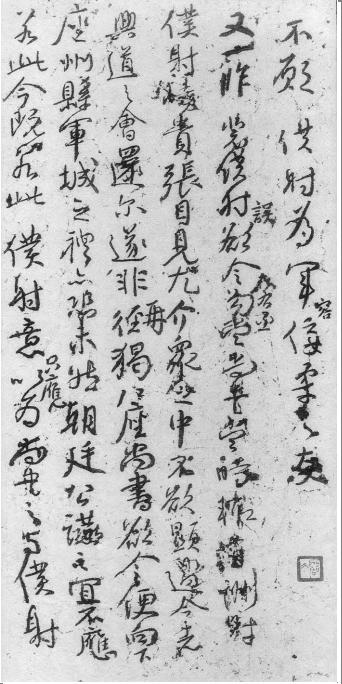 不願僕射為軍容佞柔之友
又一昨裴僕射誤欲令左右丞勾當尚書當時輒有酬對
僕射恃貴張目見尤介眾之中不欲顯過今者
興道之會還爾遂非再徑猲八座尚書欲令便向下
座州縣軍城之禮亦恐未然朝廷公讌之宜不應
若此今既若此僕射意只應以為尚書之與僕射